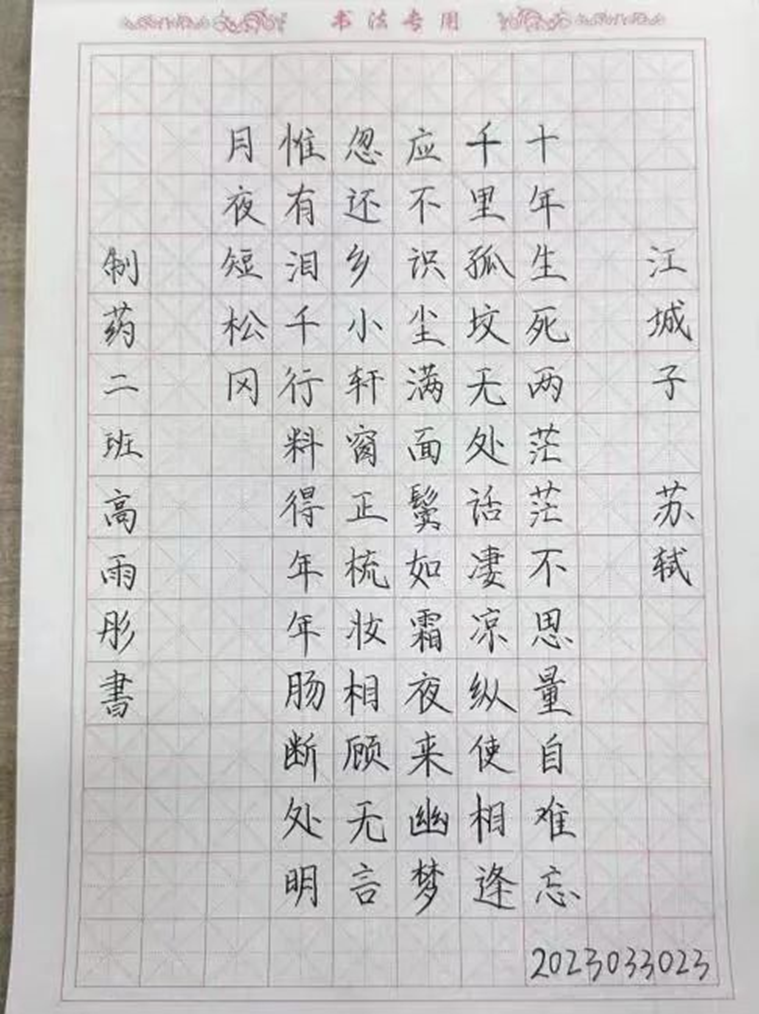 书法专用
江城子 苏轼
十年生死两茫茫不思量自难忘
千里孤坟无处话凄凉纵使相逢
应不识尘满面鬓如霜夜来幽梦
忽还乡小轩窗正梳妆相顾无言
惟有泪千行料得年年肠断处明
月夜短松冈
制药二班高雨彤書
2023033023